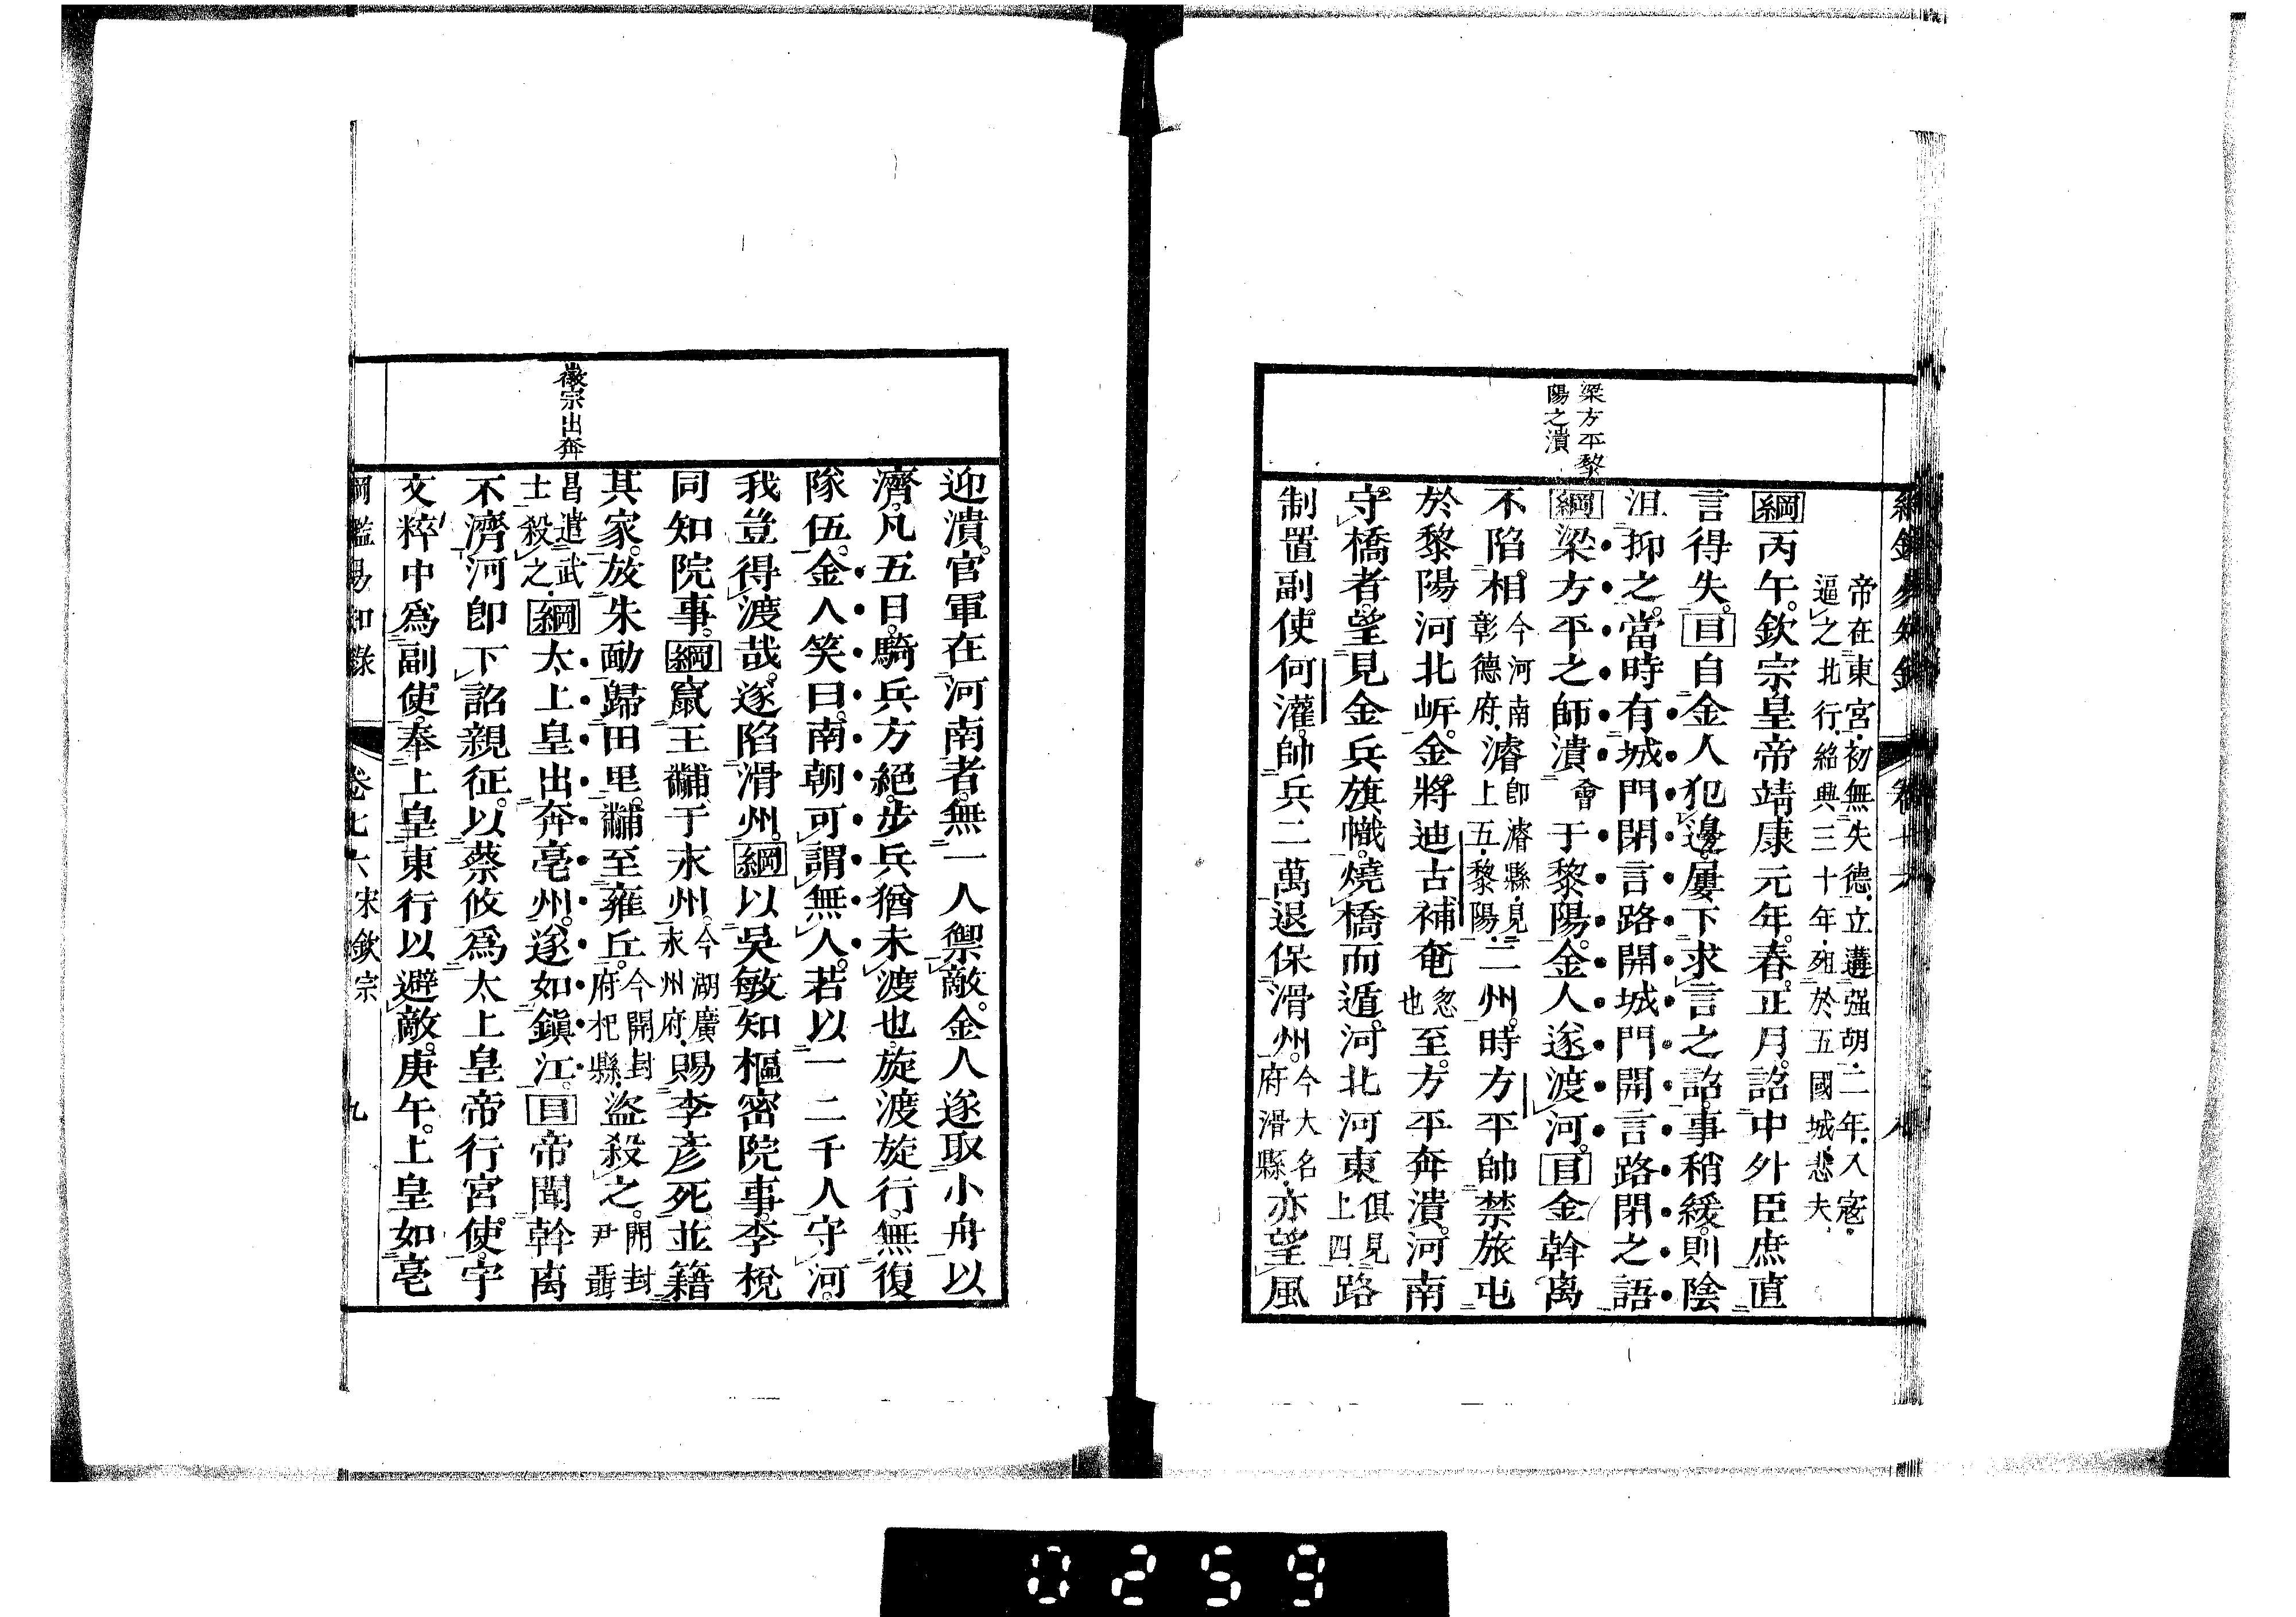 帝在東宮初無失德立遘强胡二年入寇
逼之北行紹興三十年殂於五國城悲夫
綱丙午欽宗皇帝靖康元年春正月詔中外臣庶直
言得失目自金人犯邊屢下求言之詔事稍緩則陰
沮抑之當時有城門閉言路開城門開言路閉之語
梁方平黎
陽之潰
綱梁方平之師潰會于黎陽金人遂渡河目金斡离
不陷相今河南彰德府濬即濬縣見上五黎陽二州時方平帥禁旅屯
於黎陽河北岍金將迪古補奄忽也至方平奔潰河南
守橋者望見金兵旗幟燒橋而遁河北河東俱見上四路
制置副使何灌帥兵二萬退保滑州今大名府滑縣亦望風
迎潰官軍在河南者無一人禦敵金人遂取小舟以
濟凡五日騎兵方絕步兵猶未渡也旋渡旋行無復
隊伍金人笑曰南朝可謂無人若以一二千人守河
我豈得渡哉遂陷滑州綱以吳敏知樞密院事李梲
同知院事綱竄王黼于永州今湖廣永州府賜李彥死並籍
其家放朱勔歸田里黼至雍丘今開封府杞縣盜殺之開封尹聶
徽宗出奔
昌遣武士殺之綱太上皇出奔亳州遂如鎭江目帝聞斡离
不濟河卽下詔親征以蔡攸爲太上皇帝行宮使宇
文粹中爲副使奉上皇東行以避敵庚午上皇如亳
綱鑑易知錄 卷七六宋欽宗 九
0259